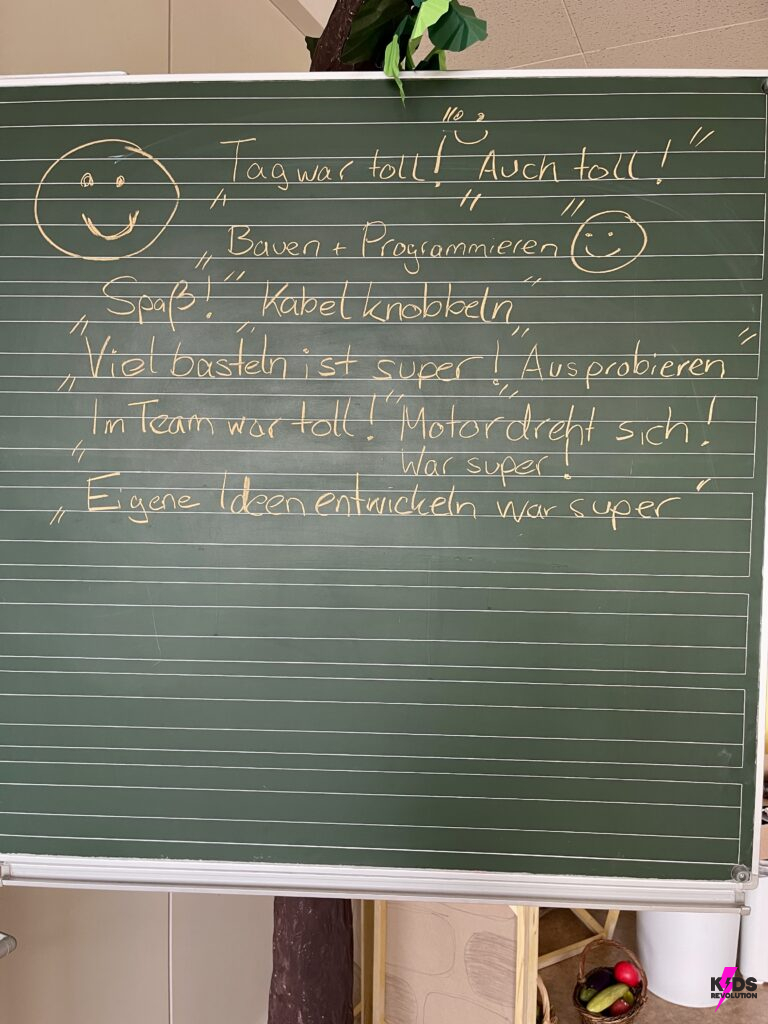 "Tag war toll!" "Auch toll!"
"Bauen + Programmieren"
"Spaß!" "Kabel knobbeln"
"Viel basteln ist super!" "Ausprobieren"
"Im Team war toll!" "Motor dreht sich!
War super!"
"Eigene Ideen entwickeln war super"
KIDS
REVOLUTION